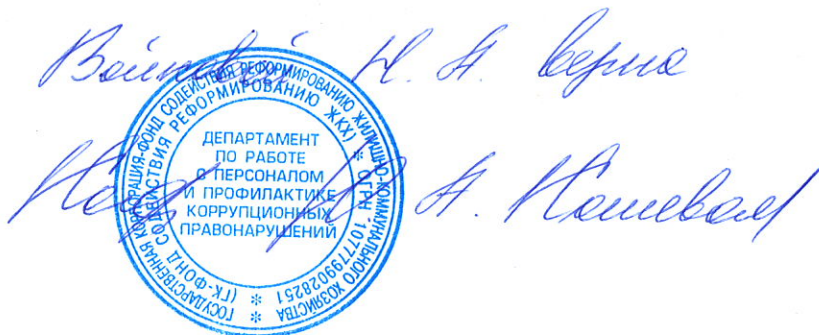 Н. А. верна
ГОСУДАРСТВЕННАЯ КОРПОРАЦИЯ-ФОНД СОДЕЙСТВИЯ РЕФОРМИРОВАНИЮ ЖИЛИЩНО-КОММУНАЛЬНОГО ХОЗЯЙСТВА
(ГК-ФОНД СОДЕЙСТВИЯ РЕФОРМИРОВАНИЮ ЖКХ) * ОГРН 1077799028251 *
ДЕПАРТАМЕНТ
ПО РАБОТЕ
С ПЕРСОНАЛОМ
И ПРОФИЛАКТИКЕ
КОРРУПЦИОННЫХ
ПРАВОНАРУШЕНИЙ